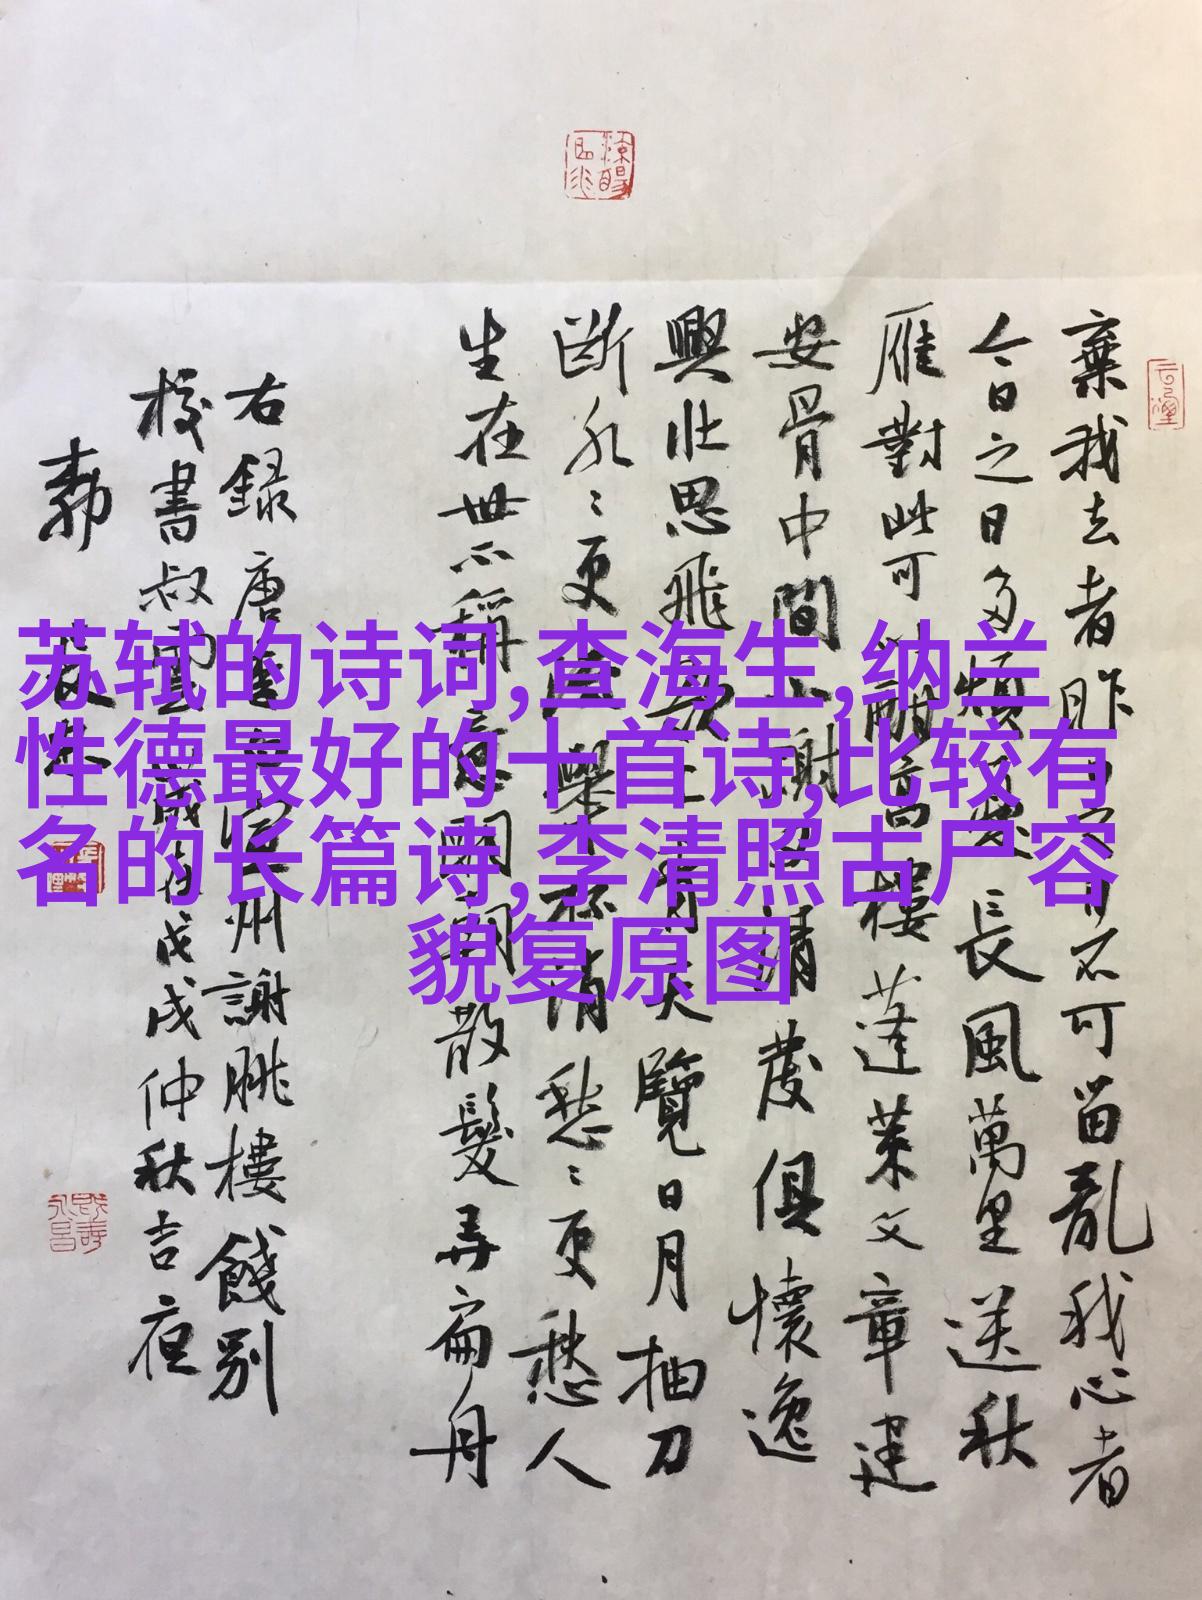 棄我去者昨日之日不可留亂我心者
今日之日多煩憂長風萬里送秋
雁對此可以酣高樓蓬萊文章建
安骨中間小謝又清發俱懷逸
興壯思飛欲上青天覽日月抽刀
斷水〻更舉杯消愁〻更愁人
生在世不稱意明朝散髮弄扁舟
右錄唐李白宣州謝朓樓餞別
校書叔雲歲在戊戌仲秋吉夜
苏轼的诗词,查海生,纳兰
性德最好的十首诗,比较有
名的长篇诗,李清照古尸容
貌复原图